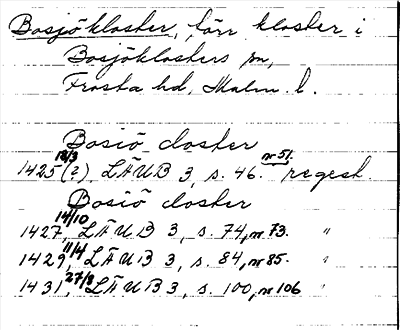 Bosjökloster, förr kloster i
Bosjöklosters sn,
Frosta hd, Malm. l.
Bosiö closter
1425 18/3 (?) LÄUB 3, s. 46. nr 51. regest.
Bosiö closter
1427 14/10, LÄUB 3, s. 74, nr 73. "
1429 11/4, LÄUB 3, s. 84, nr 85. "
1431, 27/8 LÄUB 3, s. 100, nr 106 "